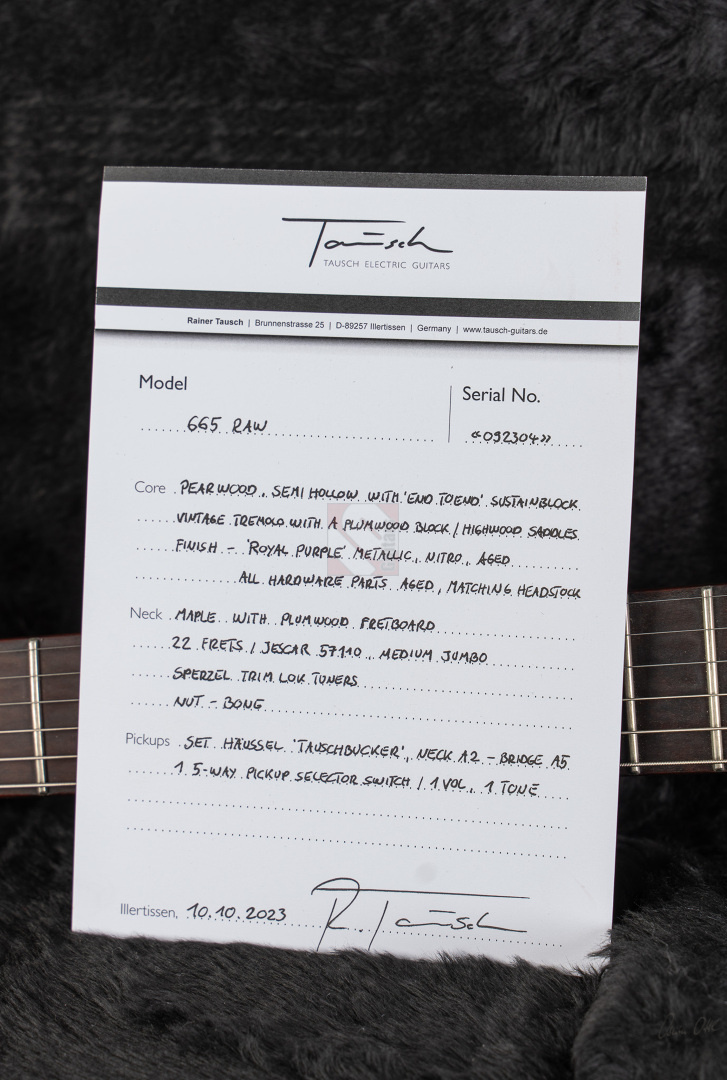 Tausch
TAUSCH ELECTRIC GUITARS
Rainer Tausch | Brunnenstrasse 25 | D-89257 Illertissen | Germany | www.tausch-guitars.de
Model
Serial No.
665 RAW
«092304»
Core PEARWOOD, SEMI HOLLOW WITH 'END TO END' SUSTAINBLOCK
VINTAGE TREMOLO WITH A PLUMWOOD BLOCK / HIGHWOOD SADDLES
FINISH - 'ROYAL PURPLE' METALLIC, NITRO, AGED
ALL HARDWARE PARTS AGED, MATCHING HEADSTOCK
Neck MAPLE WITH PLUMWOOD FRETBOARD
22 FRETS / JESCAR 57110, MEDIUM JUMBO
SPERZEL TRIM LOK TUNERS
NUT - BONE
Pickups SET HÄUSSEL 'TAUSCHBUCKER', NECK A2 - BRIDGE A5
1 5-WAY PICKUP SELECTOR SWITCH / 1 VOL, 1 TONE
Illertissen, 10.10.2023 R. Tausch